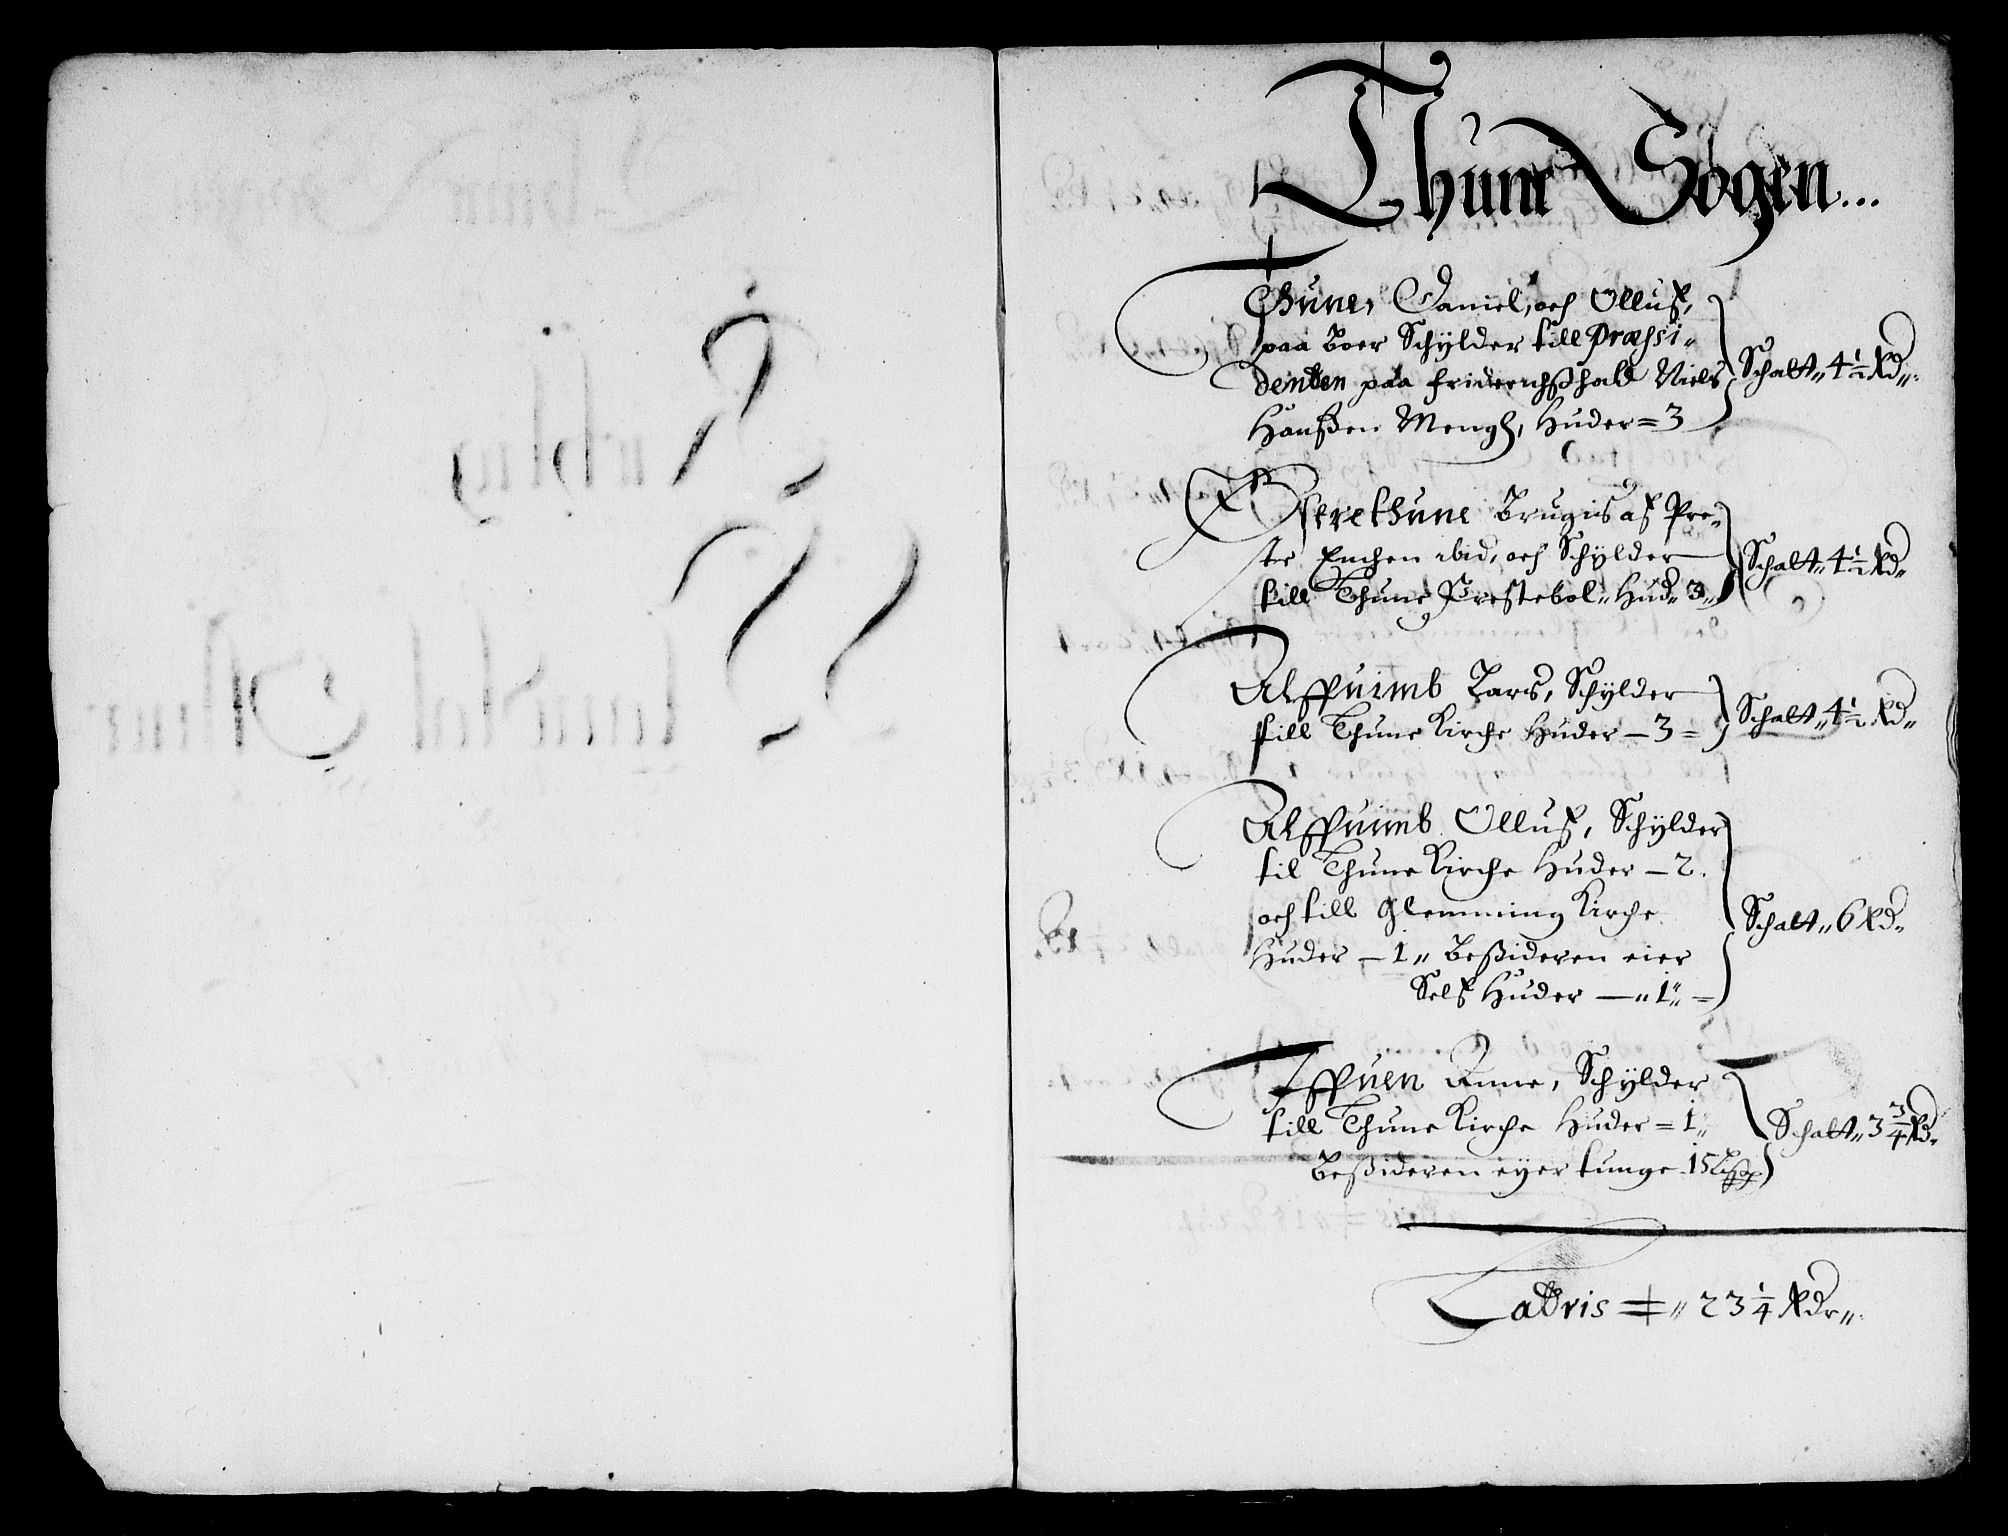 Thune Sogen...
Thune, Daniel, och Olluf,
paa boer Schÿlder till Præssi„
denten paa Friderichßhald Niels
Hanßen Mengh, Huder = 3
Schatt„ 4 1/2 Rd„
Østerethune brugis af Pre„
ste Enchen ibid, och Schÿlder
till Thune Prestebol„ Hud„ 3„
Schatt„ 4 1/2 Rd„
Alffuimb Lars, Schÿlder
till Thune Kirche Huder — 3 =
Schatt„ 4 1/2 Rd„
Alffuimb Olluf, Schÿlder
til Thune Kirche Huder — 2.
och till Glemming Kirche
Huder — 1 „ Beßideren eier
Self Huder — „ 1 „ =
Schatt„ 6 Rd„
Iffuen Anne, Schÿlder
till Thune Kirche Huder = 1„
Beßideren eÿer tunge 15 Lißp
Schatt„ 3 3/4 Rd„
Latris = „ 23 1/4 Rdr„